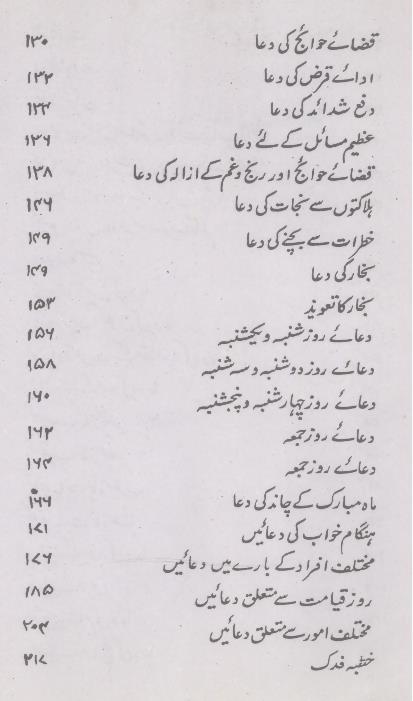 قضائے حوائج کی دعا ۱۳۰
ادائے قرض کی دعا ۱۳۲
دفع شدائد کی دعا ۱۳۳
عظیم مسائل کے لئے دعا ۱۳۶
قضائے حوائج اور رنج و غم کے ازالہ کی دعا ۱۳۸
ہلاکتوں سے نجات کی دعا ۱۴۶
خطرات سے بچنے کی دعا ۱۴۹
بخار کی دعا ۱۴۹
بخار کا تعویذ ۱۵۳
دعائے روز شنبہ و یکشنبہ ۱۵۶
دعائے روز دوشنبہ و سہ شنبہ ۱۵۸
دعائے روز چہارشنبہ و پنجشنبہ ۱۶۰
دعائے روز جمعہ ۱۶۲
دعائے روز جمعہ ۱۶۴
ماہ مبارک کے چاند کی دعا ۱۶۶
ہنگام خواب کی دعائیں ۱۷۱
مختلف افراد کے بارے میں دعائیں ۱۷۶
روز قیامت سے متعلق دعائیں ۱۸۵
مختلف امور سے متعلق دعائیں ۲۰۴
خطبہ فدک ۲۱۷